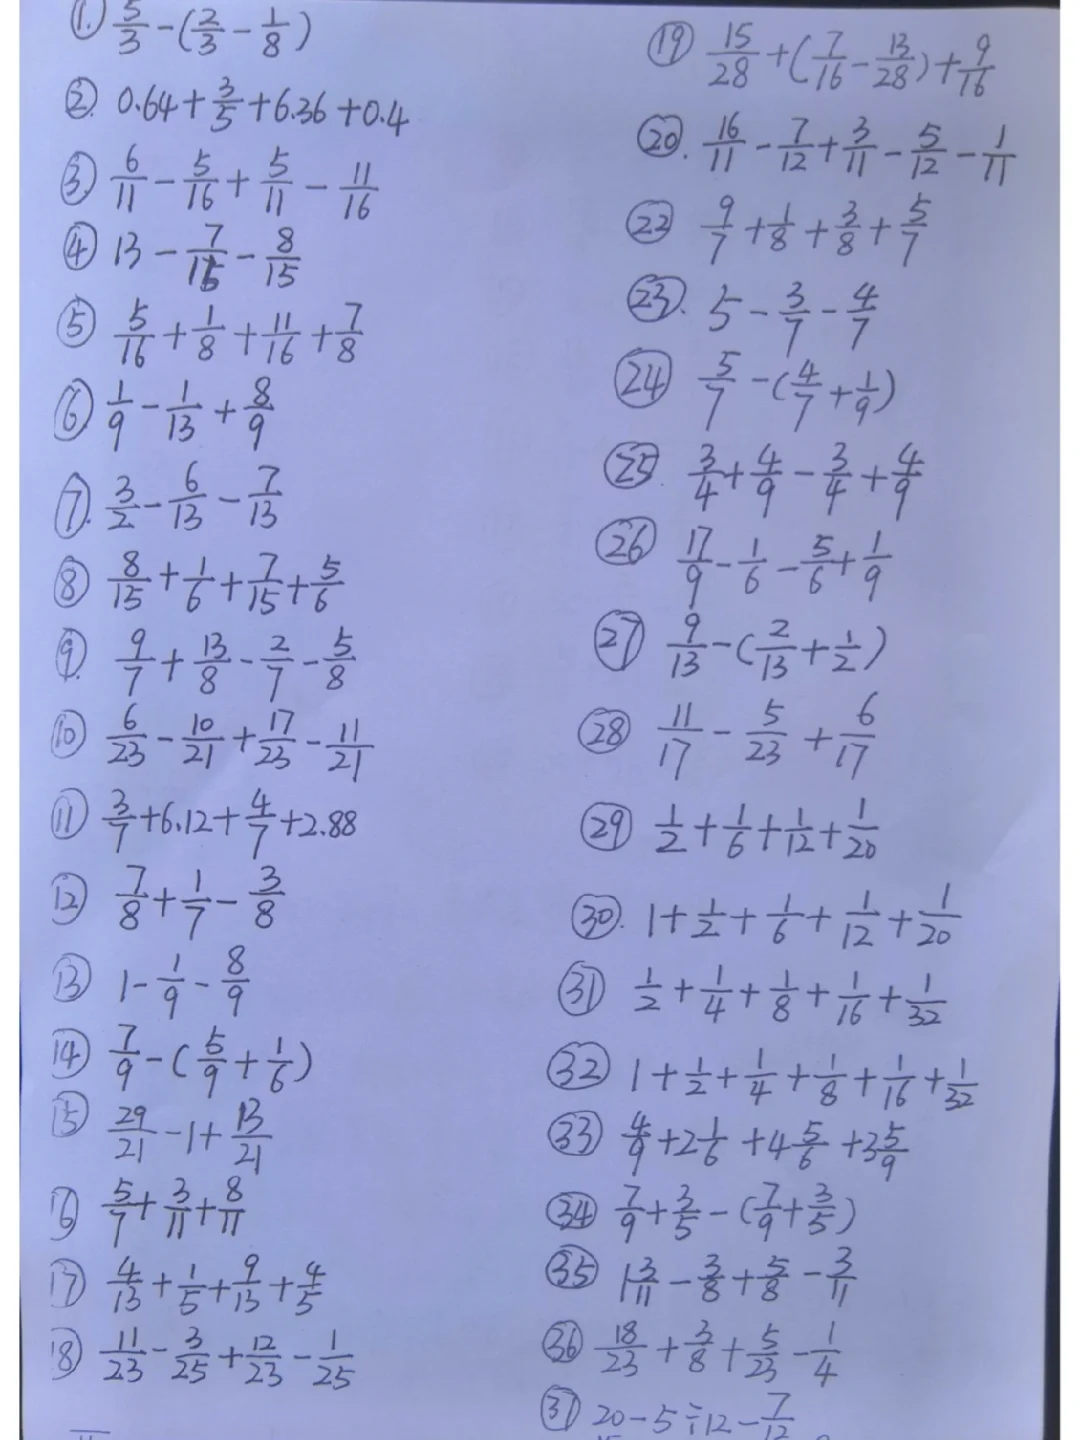 ① 5/3-(2/3-1/8)
② 0.64+3/5+6.36+0.4
③ 6/11-5/16+5/11-11/16
④ 13-7/15-8/15
⑤ 5/16+1/8+11/16+7/8
⑥ 1/9-1/13+8/9
⑦ 3/2-6/13-7/13
⑧ 8/15+1/6+7/15+5/6
⑨ 9/7+13/8-2/7-5/8
⑩ 6/23-10/21+17/23-11/21
⑪ 3/7+6.12+4/7+2.88
⑫ 7/8+1/7-3/8
⑬ 1-1/9-8/9
⑭ 7/9-(5/9+1/6)
⑮ 29/21-1+13/21
⑯ 5/7+3/11+8/11
⑰ 4/13+1/5+9/13+4/5
⑱ 11/23-3/25+12/23-1/25
⑲ 15/28+(7/16-13/28)+9/16
⑳. 16/11-7/12+3/11-5/12-1/11
㉒ 9/7+1/8+3/8+5/7
㉓. 5-3/7-4/7
㉔ 5/7-(4/7+1/9)
㉕ 3/4+4/9-3/4+4/9
㉖ 17/9-1/6-5/6+1/9
㉗ 9/13-(2/13+1/2)
㉘ 11/17-5/23+6/17
㉙ 1/2+1/6+1/12+1/20
㉚. 1+1/2+1/6+1/12+1/20
㉛ 1/2+1/4+1/8+1/16+1/32
㉜ 1+1/2+1/4+1/8+1/16+1/32
㉝ 4/9+2 1/6+4 5/6+3 5/9
㉞ 7/9+3/5-(7/9+3/5)
㉟ 1 3/11-3/8+5/8-3/11
㊱ 18/23+3/8+5/23-1/4
㊲ 20-5÷12-7/12